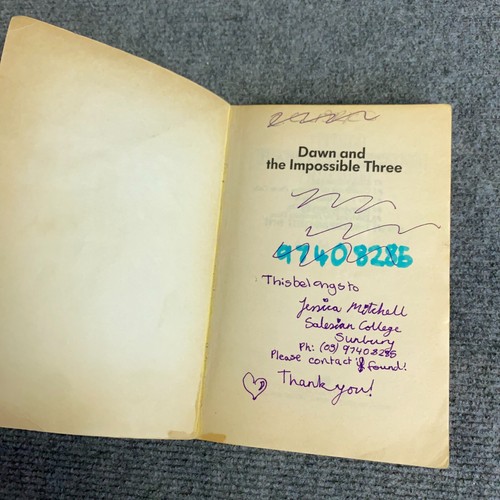 Dawn and
the Impossible Three
97408285
This belongs to
Jessica Mitchell
Salesian College
Sunbury
Ph: (03) 97408285
Please contact if found!
Thank you!